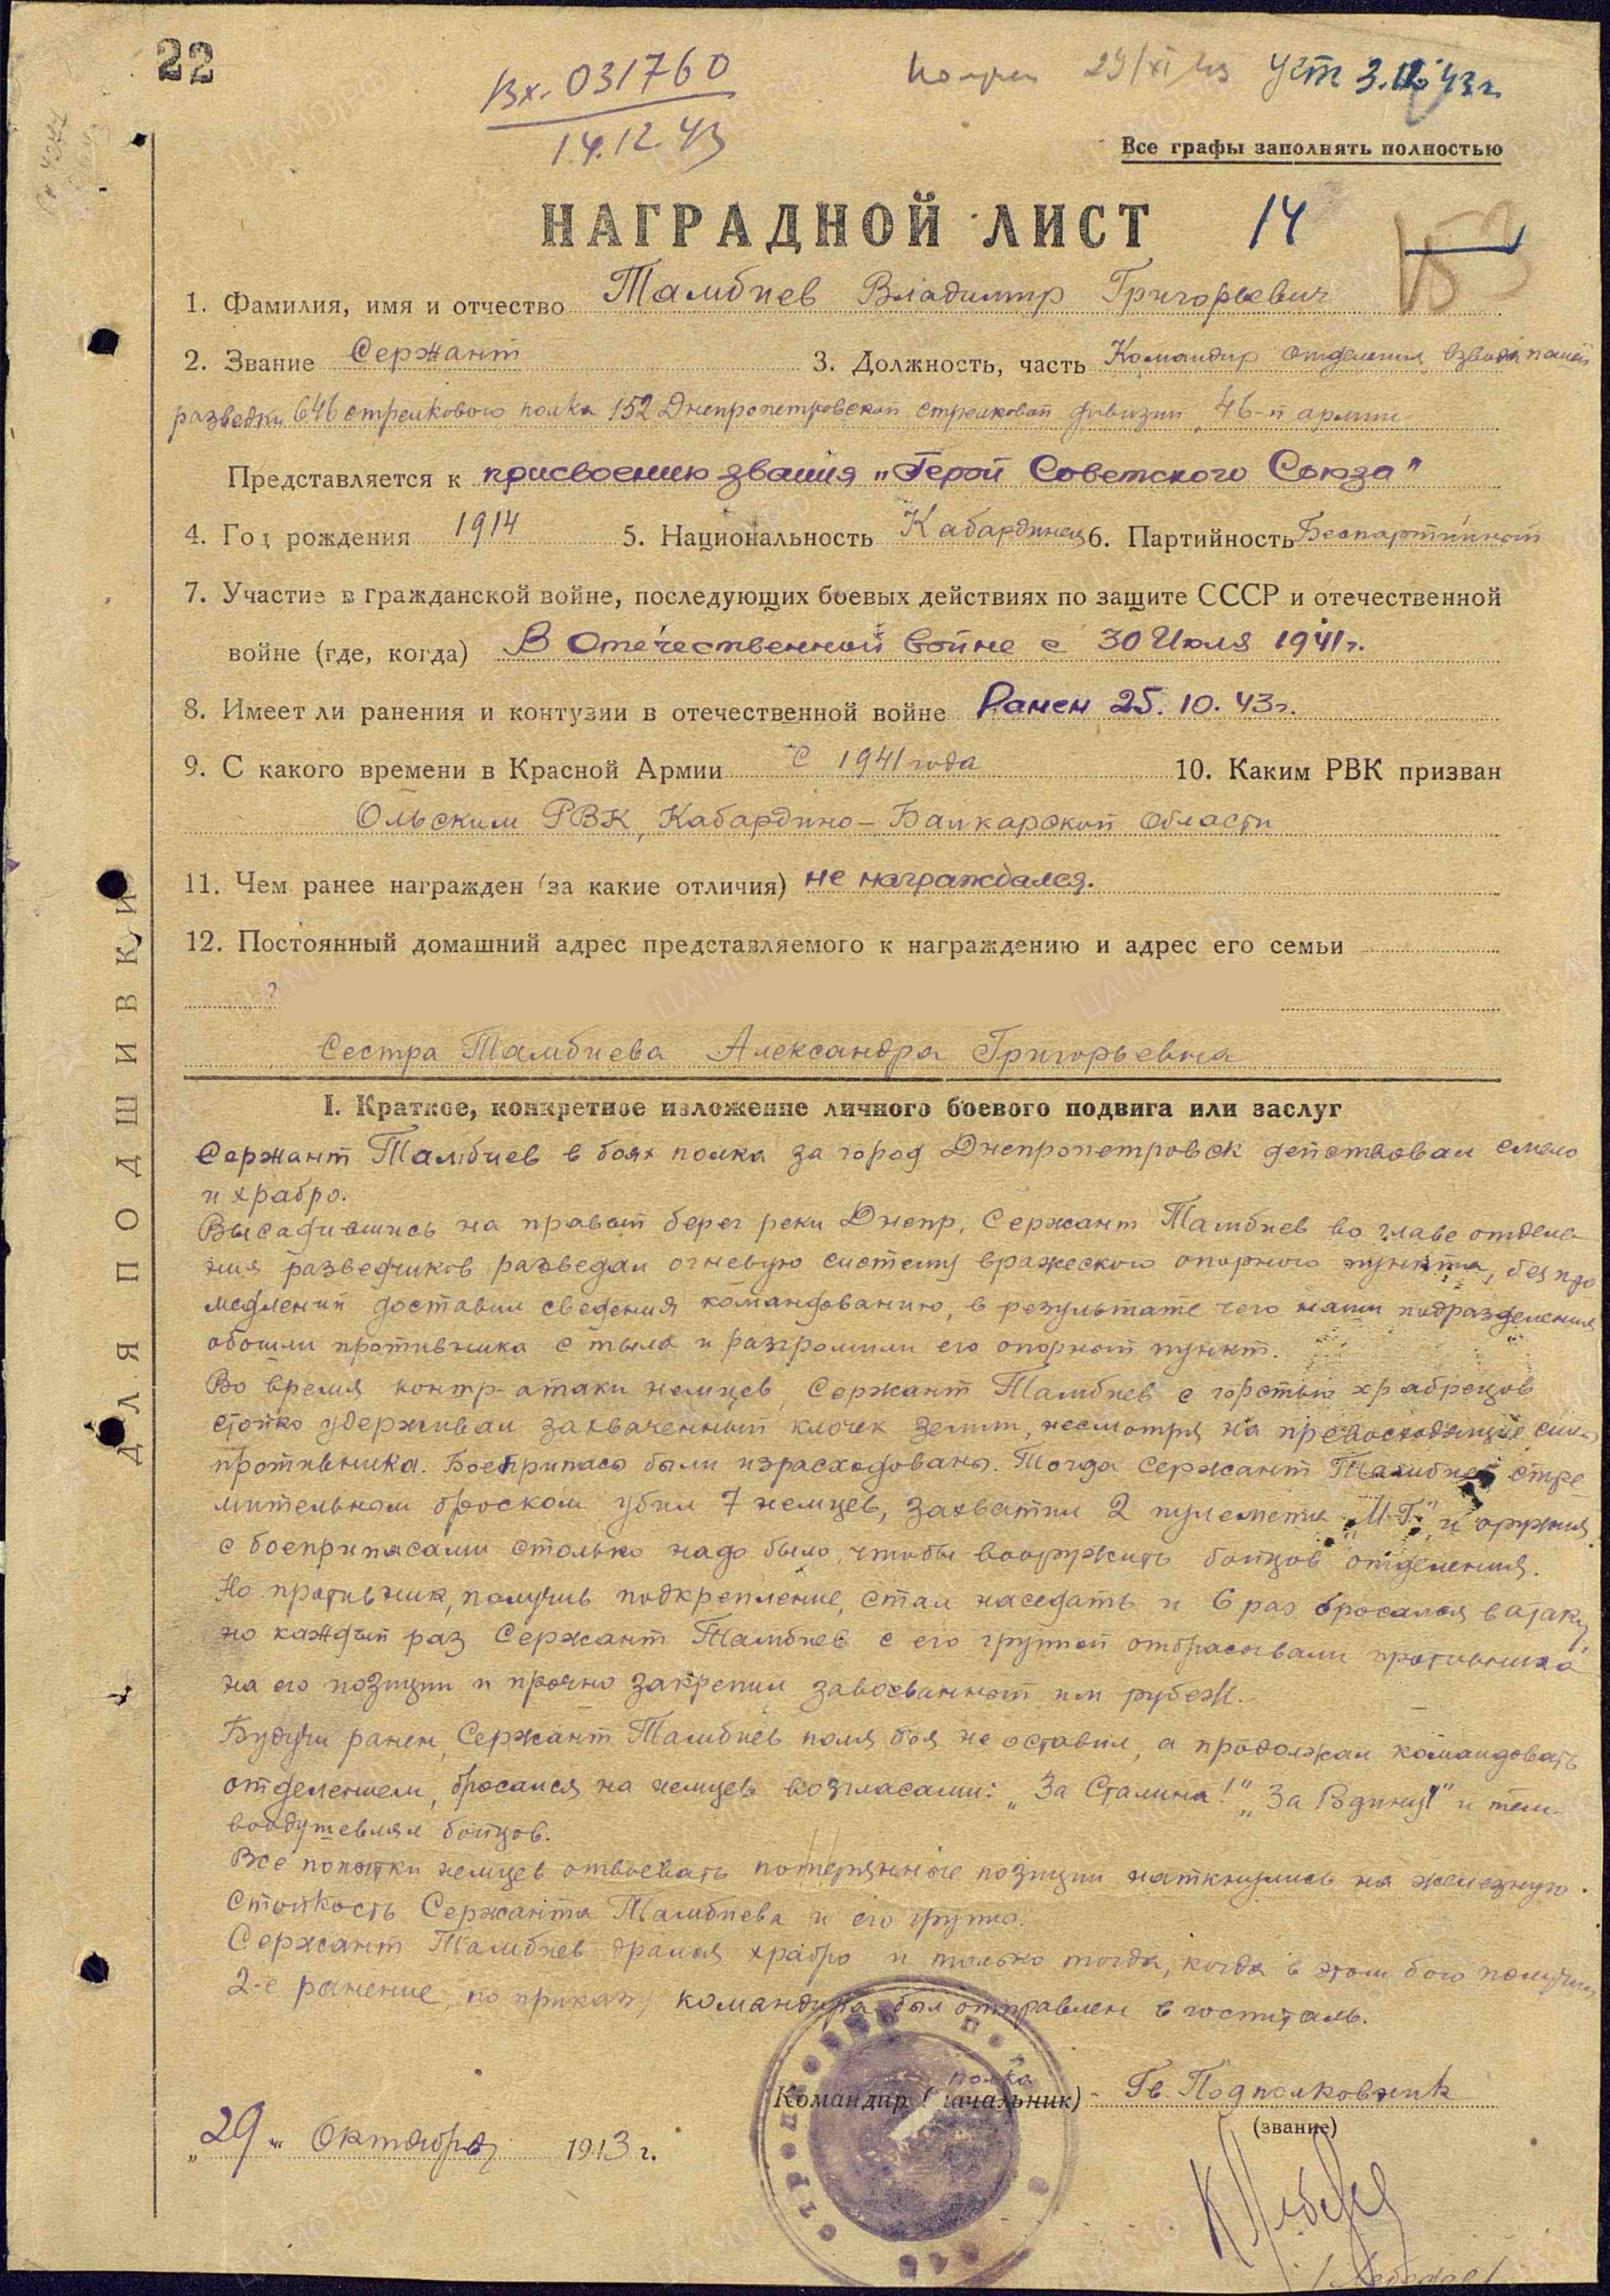 22
Вх. 031760
14.12.43
29/XI 43
Все графы заполнять полностью
НАГРАДНОЙ ЛИСТ 14
1. Фамилия, имя и отчество Тамбиев Владимир Григорьевич
2. Звание Сержант 3. Должность, часть Командир отделения взвода пешей
разведки 646 стрелкового полка 152 Днепропетровской стрелковой дивизии 46-й армии
Представляется к присвоению звания „Герой Советского Союза"
4. Год рождения 1914 5. Национальность Кабардинец 6. Партийность Беспартийный
7. Участие в гражданской войне, последующих боевых действиях по защите СССР и отечественной
войне (где, когда) В Отечественной войне с 30 Июля 1941 г.
8. Имеет ли ранения и контузии в отечественной войне Ранен 25.10.43г.
9. С какого времени в Красной Армии С 1941 года 10. Каким РВК призван
Ольским РВК, Кабардино-Балкарской области
11. Чем ранее награжден (за какие отличия) не награждался.
12. Постоянный домашний адрес представляемого к награждению и адрес его семьи
Сестра Тамбиева Александра Григорьевна
I. Краткое, конкретное изложение личного боевого подвига или заслуг
Сержант Тамбиев в боях полка за город Днепропетровск действовал смело
и храбро.
Высадившись на правый берег реки Днепр, Сержант Тамбиев во главе отделе-
ния разведчиков разведал огневую систему вражеского опорного пункта, без про
медлений доставил сведения командованию, в результате чего наши подразделения
обошли противника с тыла и разгромили его опорный пункт.
Во время контр-атаки немцев, Сержант Тамбиев с горстью храбрецов
стойко удерживал захваченный клочек земли, несмотря на превосходящие силы
противника. Боеприпасы были израсходованы. Тогда Сержант Тамбиев стре
мительным броском убил 7 немцев, захватил 2 пулемета „М-Г." и оружия
с боеприпасами столько надо было, чтобы вооружить бойцов отделения.
Но противник, получив подкрепление, стал наседать и 6 раз бросался в атаку,
но каждый раз Сержант Тамбиев с его группой отбрасывали противника
на его позиции и прочно закрепил завоеванный им рубеж.
Будучи ранен, Сержант Тамбиев поля боя не оставил, а продолжал командовать
отделением, бросался на немцев возгласами: „За Сталина!" „За Родину!" и тем
воодушевлял бойцов.
Все попытки немцев отвоевать потерянные позиции наткнулись на железную
стойкость Сержанта Тамбиева и его группы.
Сержант Тамбиев дрался храбро и только тогда, когда в этом бою получил
2-е ранение, по приказу командира был отправлен в госпиталь.
полка
Командир (начальник) - Гв. Подполковник
(звание)
„29" Октября 1943 г.
/Лебедев/
ДЛЯ ПОДШИВКИ